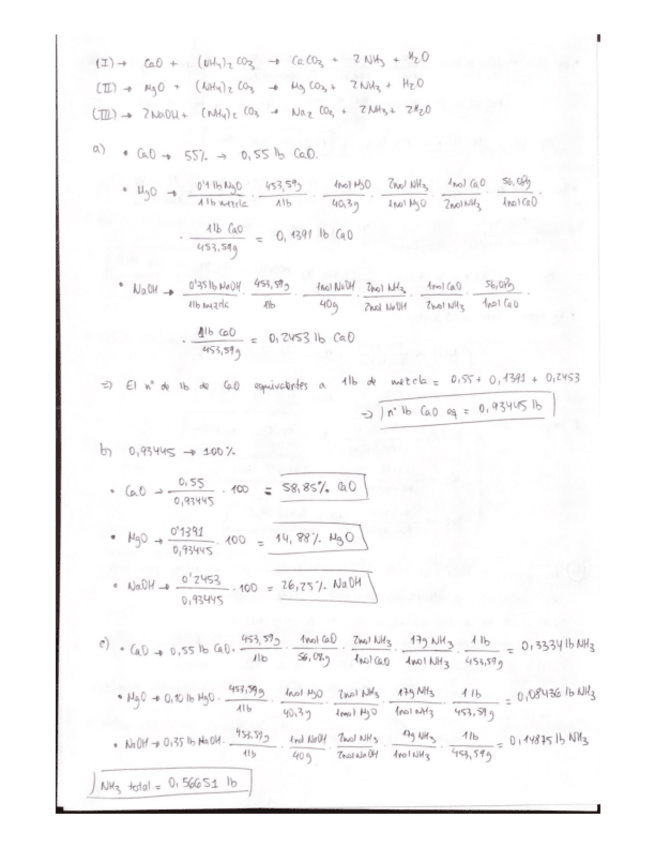 (I) → CaO + (NH4)2 CO3 → CaCO3 + 2NH3 + H2O
(II) → MgO + (NH4)2 CO3 → MgCO3 + 2NH3 + H2O
(III) → 2NaOH + (NH4)2 CO3 → Na2 CO3 + 2NH3 + 2H2O
a) • CaO → 55% → 0,55 lb CaO.
• MgO → 0'1 lb MgO / 1 lb mezcla · 453,59g / 1lb · 1mol MgO / 40,3g · 2mol NH3 / 1mol MgO · 1mol CaO / 2mol NH3 · 56,08g / 1mol CaO ·
· 1lb CaO / 453,59g = 0,1391 lb CaO
• NaOH → 0'35 lb NaOH / 1lb mezcla · 453,59g / 1lb · 1mol NaOH / 40g · 2mol NH3 / 2mol NaOH · 1mol CaO / 2mol NH3 · 56,08g / 1mol CaO ·
· 1lb CaO / 453,59g = 0,2453 lb CaO
=> El nº de lb de CaO equivalentes a 1lb de mezcla = 0,55 + 0,1391 + 0,2453
=> nº lb CaO eq = 0,93445 lb
b) 0,93445 → 100%
• CaO → 0,55 / 0,93445 · 100 = 58,85% CaO
• MgO → 0'1391 / 0,93445 · 100 = 14,88% MgO
• NaOH → 0'2453 / 0,93445 · 100 = 26,25% NaOH
c) • CaO → 0,55 lb CaO · 453,59g / 1lb · 1mol CaO / 56,08g · 2mol NH3 / 1mol CaO · 17g NH3 / 1mol NH3 · 1lb / 453,59g = 0,3334 lb NH3
• MgO → 0,10 lb MgO · 453,59g / 1lb · 1mol MgO / 40,3g · 2mol NH3 / 1mol MgO · 17g NH3 / 1mol NH3 · 1lb / 453,59g = 0,08436 lb NH3
• NaOH → 0,35 lb NaOH · 453,59g / 1lb · 1mol NaOH / 40g · 2mol NH3 / 2mol NaOH · 17g NH3 / 1mol NH3 · 1lb / 453,59g = 0,14875 lb NH3
NH3 total = 0,56651 lb